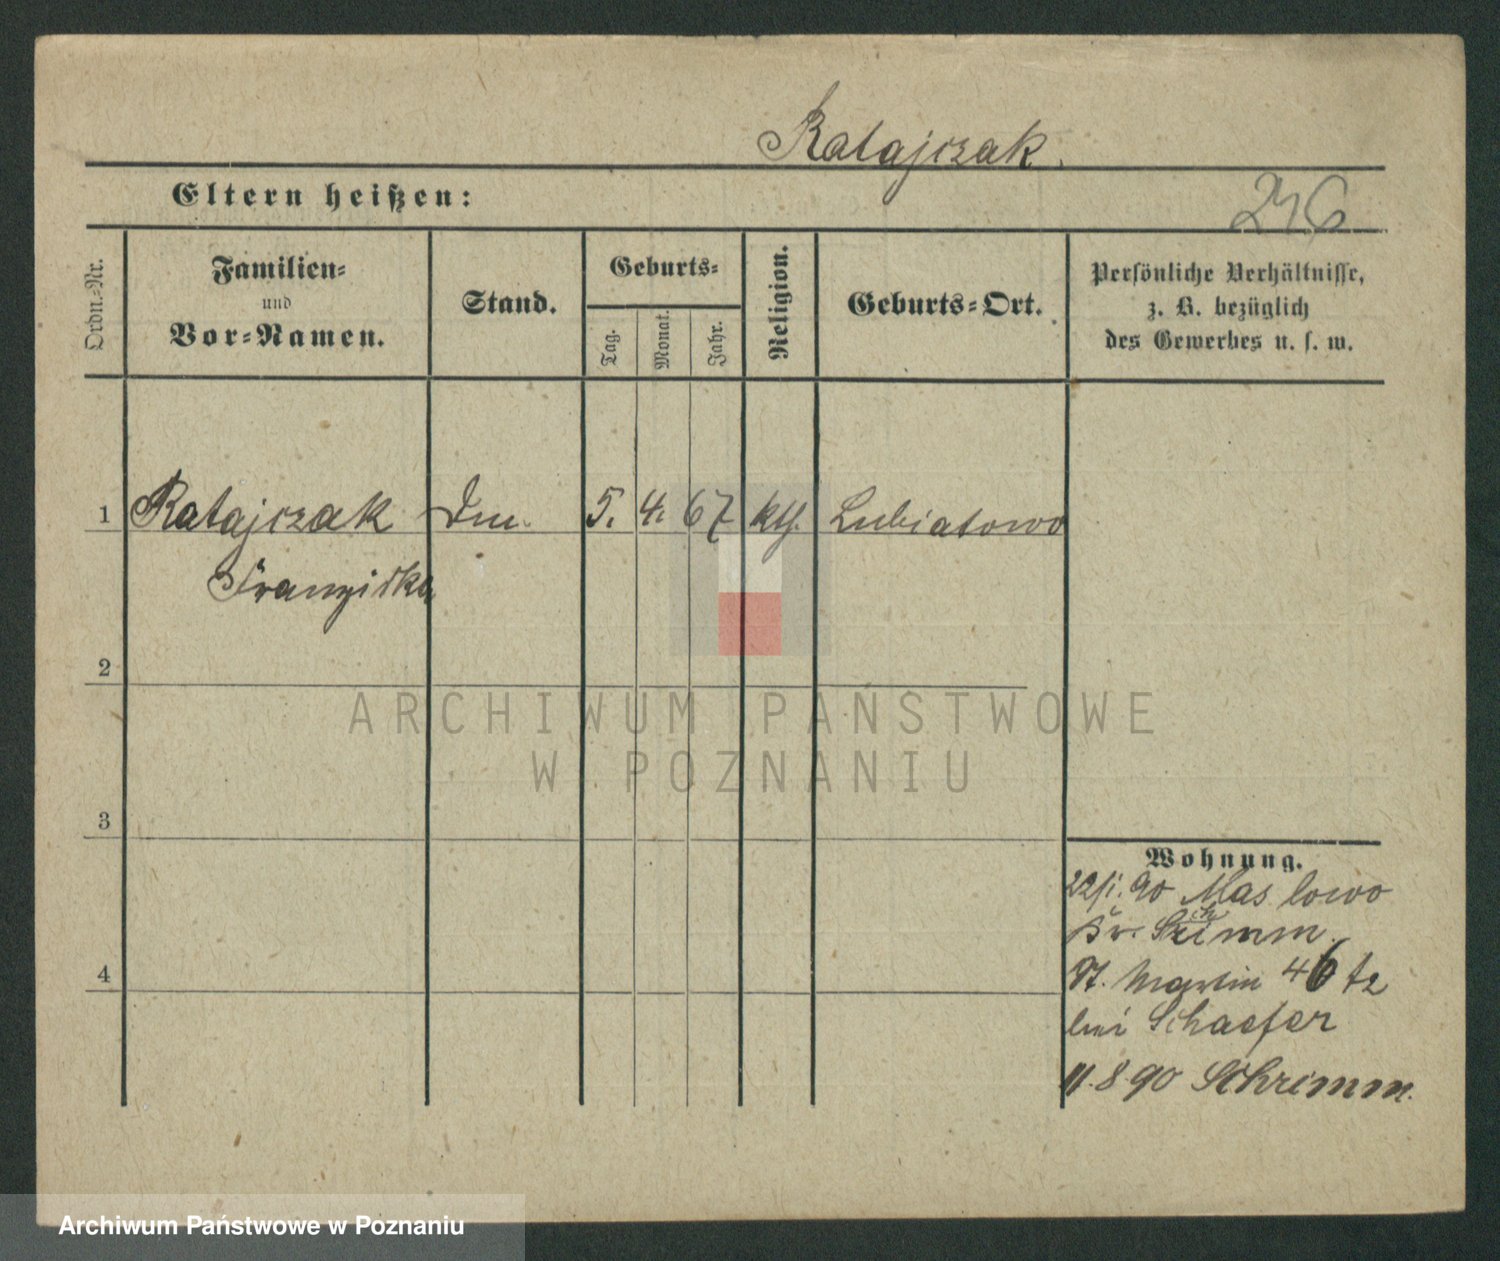 Ratajczak.
Eltern heißen:
246
Ordn.-Nr.
Familien-
und
Vor-Namen.
Stand.
Geburts-
Tag.
Monat.
Jahr.
Religion.
Geburts-Ort.
Persönliche Verhältnisse,
z. B. bezüglich
des Gewerbes u. s. w.
1 Ratajczak 5. 4. 67 kth. Lubiatowo
Franziska
2
3
4
Wohnung.
90 Maslowo
Kr. Schrimm
St. Martin 46
bei Schaefer
11.8.90 Schrimm.
ARCHIWUM PAŃSTWOWE
W POZNANIU
Archiwum Państwowe w Poznaniu